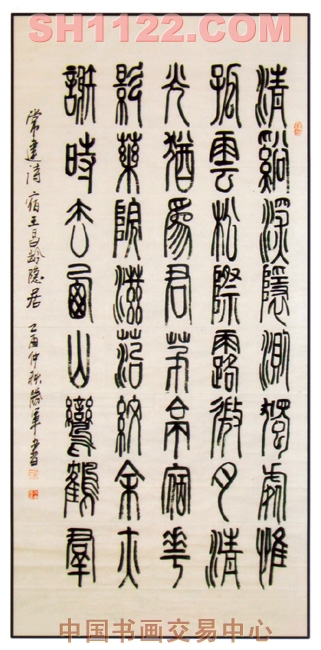 SH1122.COM
清谿深隱測獨處惟
孤雲松際露微月清
光猶爲君茅亭宿花
影藥院滋苔紋余亦
謝時去西山鸞鶴羣
常建诗宿王昌龄隐居 乙酉仲秋 军书
中国书画交易中心